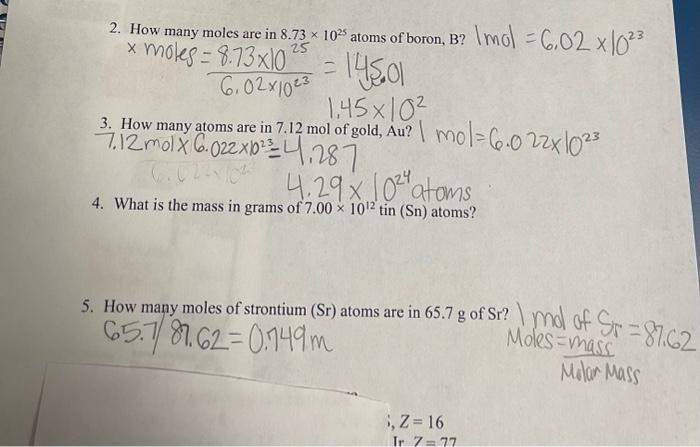 2. How many moles are in 8.73 × 10²⁵ atoms of boron, B? 1mol = 6.02 ×10²³
x moles = 8.73×10²⁵ = 145.01
6.02×10²³
1.45×10²
3. How many atoms are in 7.12 mol of gold, Au? 1 mol=6.022×10²³
7.12mol× 6.022×10²³=4.287
4.29×10²⁴ atoms
4. What is the mass in grams of 7.00 × 10¹² tin (Sn) atoms?
5. How many moles of strontium (Sr) atoms are in 65.7 g of Sr? 1 mol of Sr = 87.62
65.7/87.62=0.749m
Moles=mass
Molar Mass
, Z = 16
Ir Z = 77